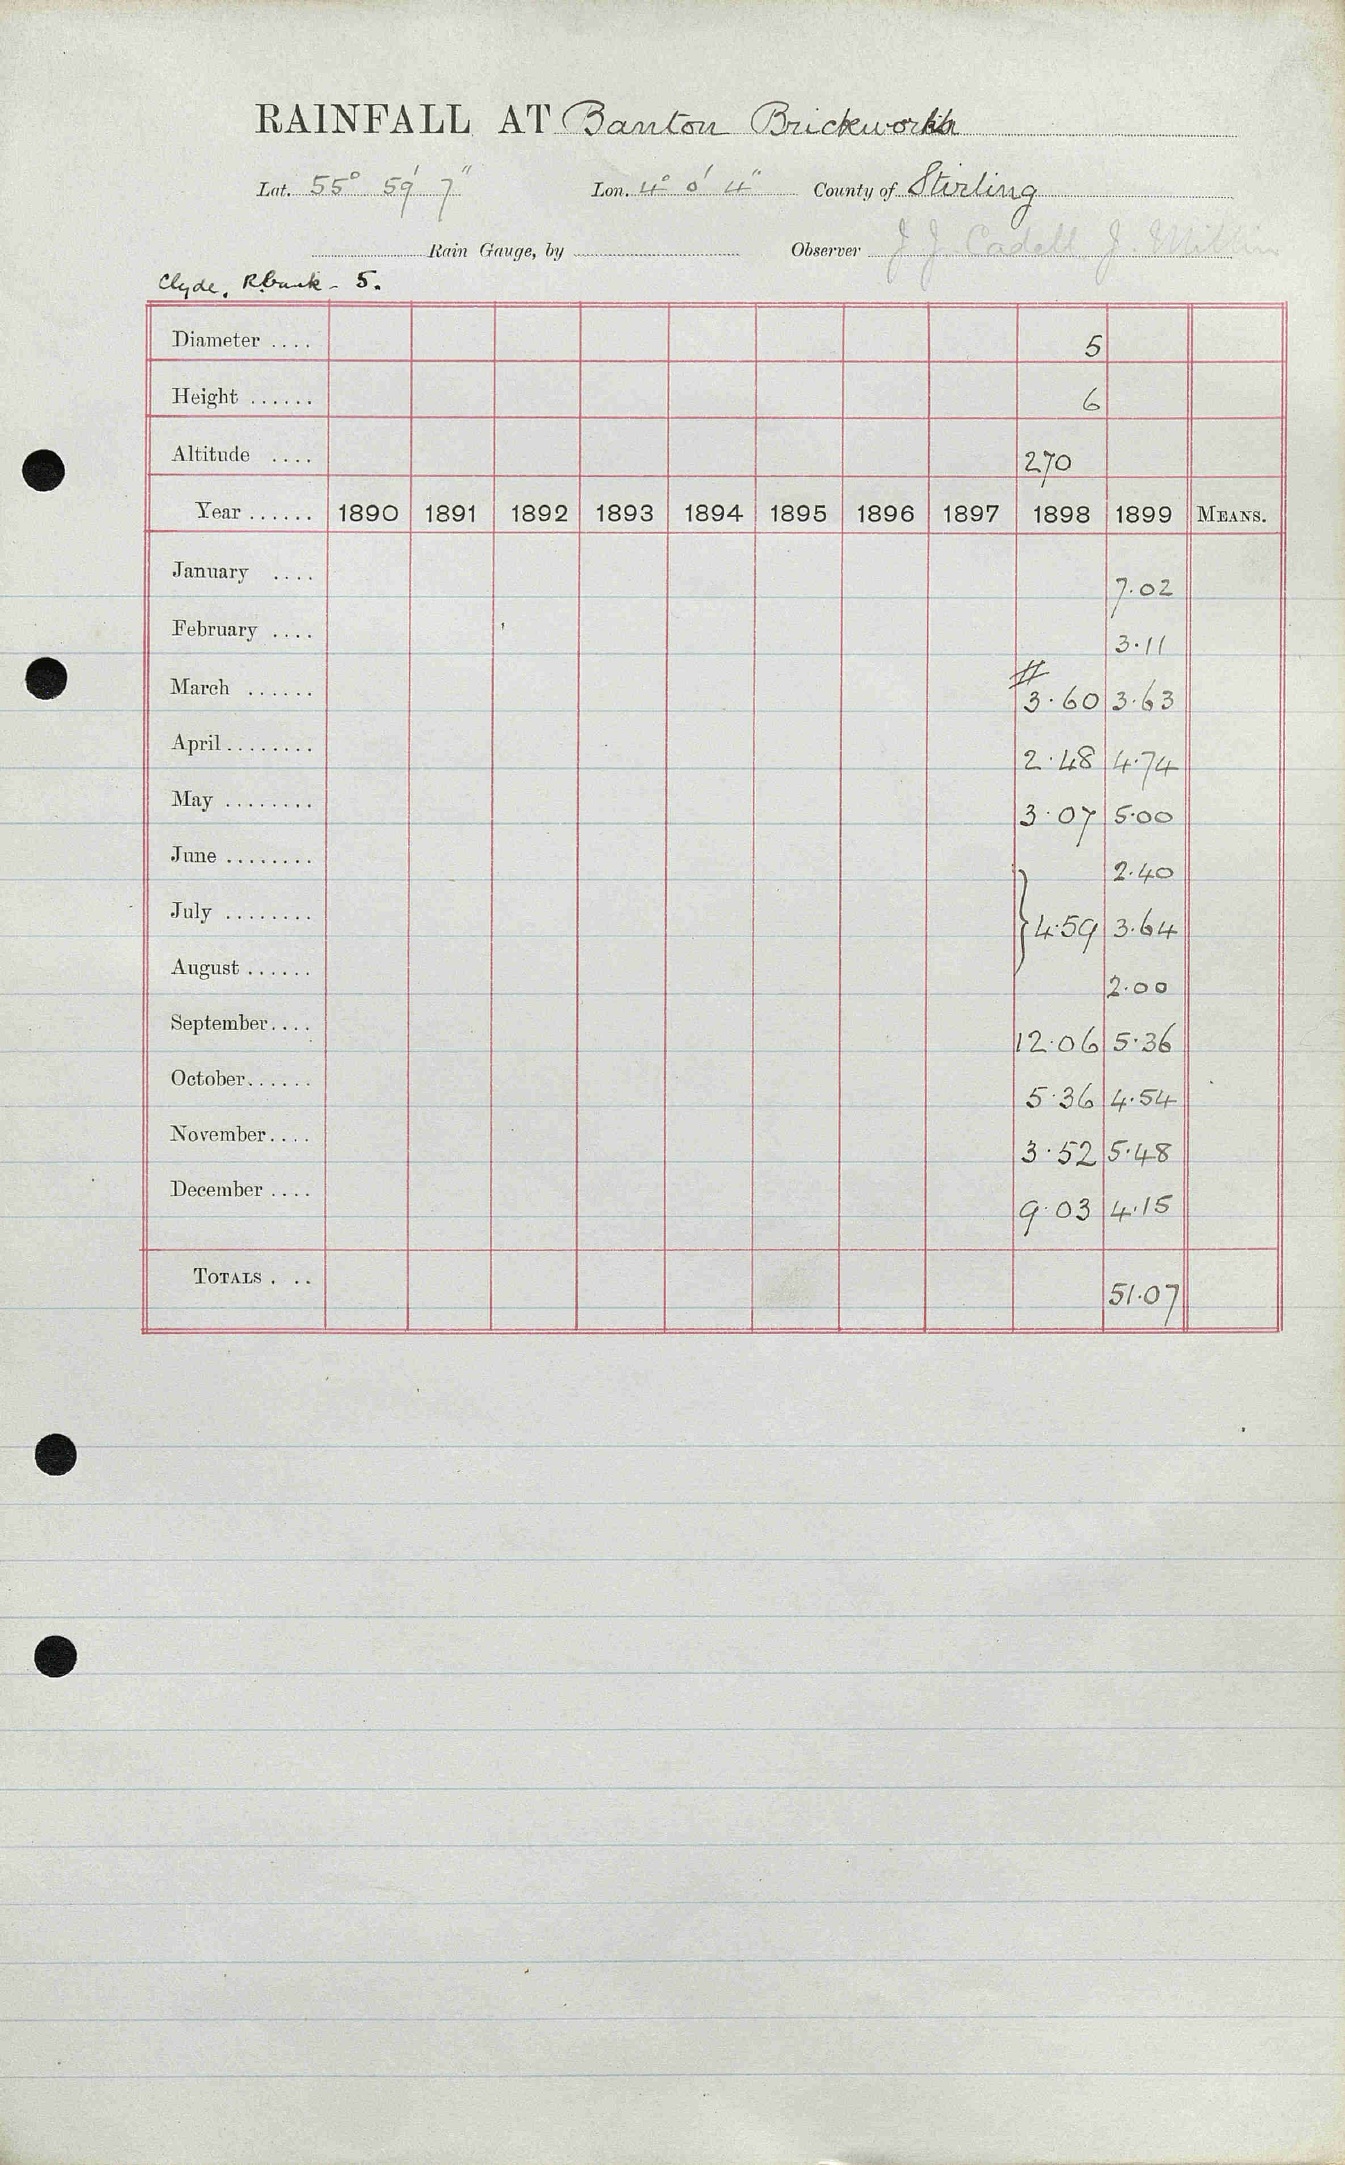 RAINFALL AT Banton Brickworks
Lat. 55° 59' 7" Lon. 4° 0' 4" County of Stirling
Rain Gauge, by Observer J J. Cadell J.
Clyde. Rbank - 5.
Diameter .... 5
Height ...... 6
Altitude .... 270
Year ...... 1890 1891 1892 1893 1894 1895 1896 1897 1898 1899 MEANS.
January .... 7.02
February .... 3.11
March ...... # 3.60 3.63
April ........ 2.48 4.74
May ........ 3.07 5.00
June ........ 2.40
July ........ } 4.59 3.64
August ...... 2.00
September.... 12.06 5.36
October...... 5.36 4.54
November.... 3.52 5.48
December .... 9.03 4.15
TOTALS . .. 51.07